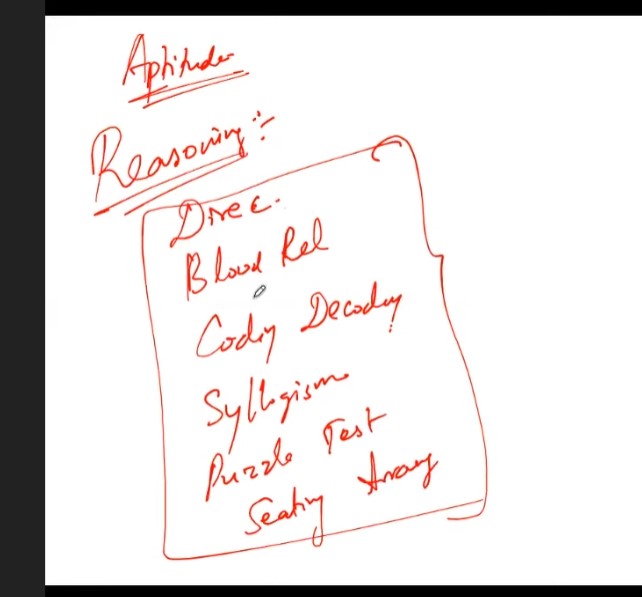 Aptitude
Reasoning :-
Direc.
Blood Rel
Coding Decoding
Syllogism
Puzzle Test
Seating Arrang